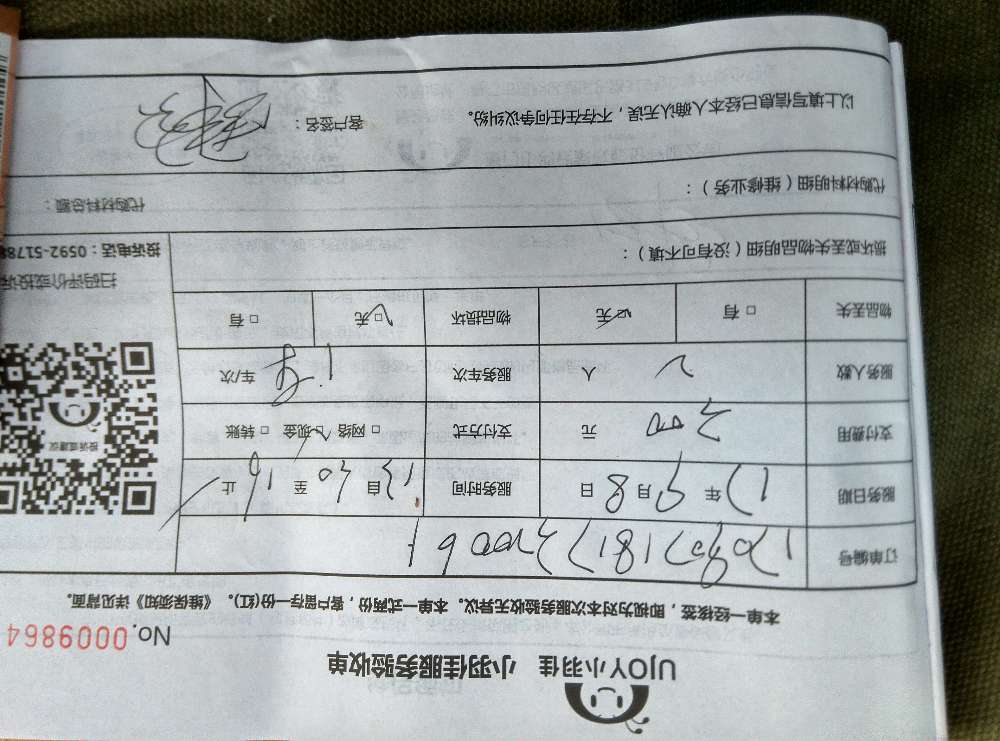 UJOY小羽佳 小羽佳服务验收单
No. 0009864
本单一经核签，即视为对本次服务验收无异议。本单一式两份，客户留存一份(红)。《维保须知》详见背面。
订单编号
服务日期 17 年 9 月 8 日 服务时间 13 自 30 至 16 止
支付费用 300 元 支付方式 □ 网络 □ 现金 □ 转账
服务人数 2 人 服务车次 1 车/次
物品丢失 □ 有 □ 无 物品损坏 □ 无 □ 有
投诉或建议
扫码评价或投诉
投诉电话：0592-5178
损坏或丢失物品明细（没有可不填）：
代购材料明细（维修业务）： 代购材料总额：
以上填写信息已经本人确认无误，不存在任何争议纠纷。 客户签名：